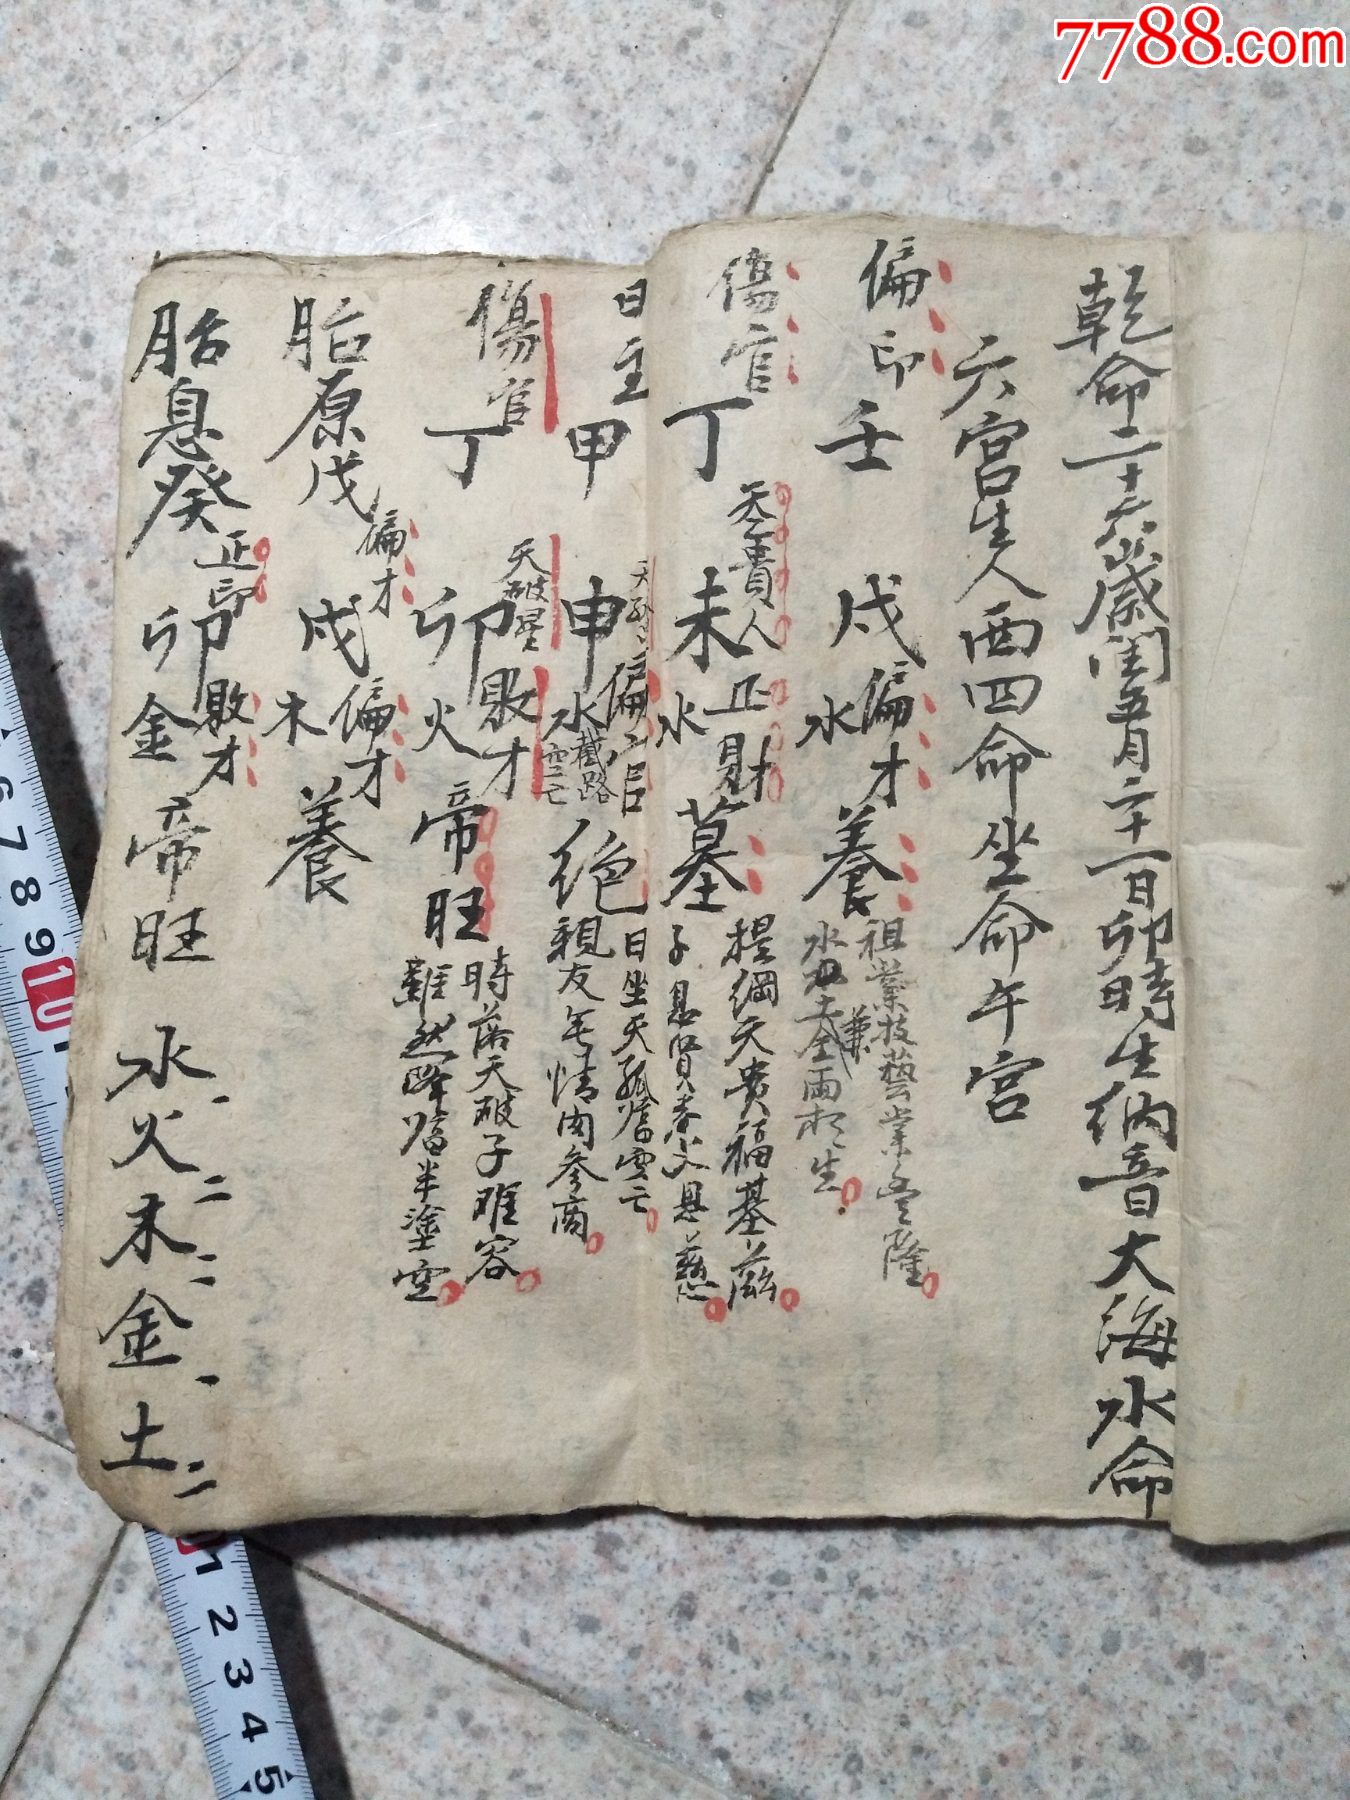 7788.com
乾命二十六歲閏五月二十一日卯時生納音大海水命
六宮生人西四命坐命午宮
偏印 壬 戌 偏才 水 養
祖業技藝業
隆
生
傷官 丁 天乙貴人 未 正財 水 墓
提綱天貴福基
子 賢孝父 慈
日主 甲 申 偏官 水 截路空亡 絕
日坐天孤 空亡
親友無情 參商
傷官 丁 天破星 卯 敗才 火 帝旺
時落天破子难容
難然 半塗空
胎原戊 偏才 戌 偏才 木 養
胎息癸 正印 卯 敗才 金 帝旺
水一火二木二金一土二
6 7 8 9 10 1
1 2 3 4 5